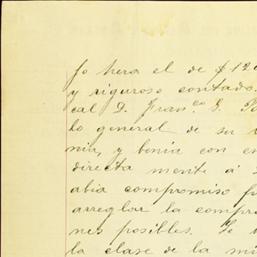 fo hera el de $120
y riguroso contado.
cal D. Fran.co G.
lo general de su
nia, y benia con en
directa mente á
abia compromiso fu
arreglar la compra
nes posibles. Se
la clase de la mi